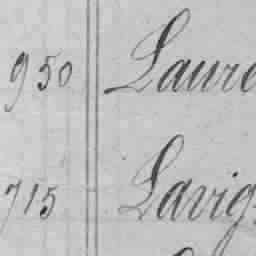 950 Laure
715 Lavig